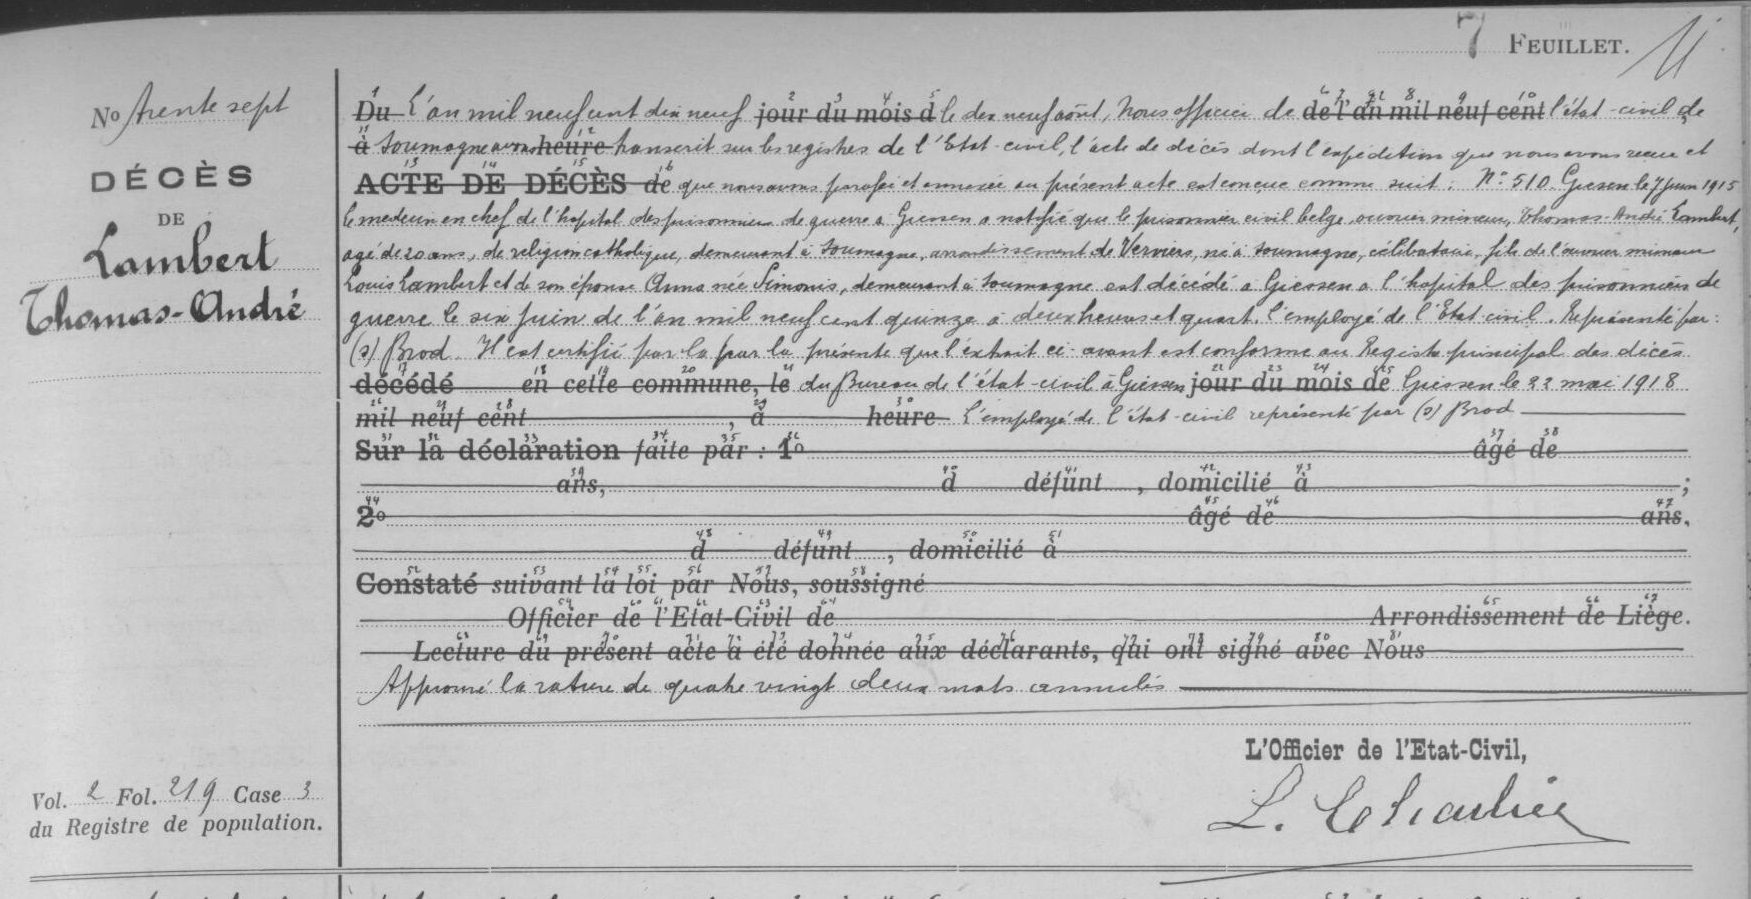 7 FEUILLET. 11
No trente sept
DÉCÈS
DE
Lambert
Thomas-André
Du L'an mil neuf cent dix neuf jour du mois d le dix neuf août, Nous officier de de l'an mil neuf cent l'état-civil de
à Soumagne avons heure transcrit sur les registres de l'Etat-civil, l'acte de décès dont l'expédition que nous avons reçue et
ACTE DE DÉCÈS de que nous avons parafée et annexée au présent acte est conçue comme suit : N° 510. Giessen le 7 juin 1915
le médecin en chef de l'hopital des prisonniers de guerre à Giessen a notifié que le prisonnier civil belge, ouvrier mineur, Thomas-André Lambert,
agé de 20 ans, de religion catholique, demeurant à Soumagne, arrondissement de Verviers, né à Soumagne, célibataire, fils de l'ouvrier mineur
Louis Lambert et de son épouse Anna née Simonis, demeurant à Soumagne est décédé à Giessen à l'hopital des prisonniers de
guerre le six juin de l'an mil neuf cent quinze à deux heures et quart. L'employé de l'Etat civil. Représenté par :
(s) Brod. Il est certifié par la par la présente que l'extrait ci-avant est conforme au Registre principal des décès
décédé en cette commune, le du Bureau de l'état-civil à Giessen jour du mois de Giessen le 22 mai 1918
mil neuf cent , à heure L'employé de l'état-civil représenté par (s) Brod
Sur la déclaration faite par : 1o âgé de
ans, d défunt , domicilié à ;
2o âgé de ans,
d défunt , domicilié à
Constaté suivant la loi par Nous, soussigné
Officier de l'Etat-Civil de Arrondissement de Liège.
Lecture du présent acte a été donnée aux déclarants, qui ont signé avec Nous
Approuvé la rature de quatre vingt deux mots annulés
L'Officier de l'Etat-Civil,
Vol. 2 Fol. 219 Case 3
du Registre de population.